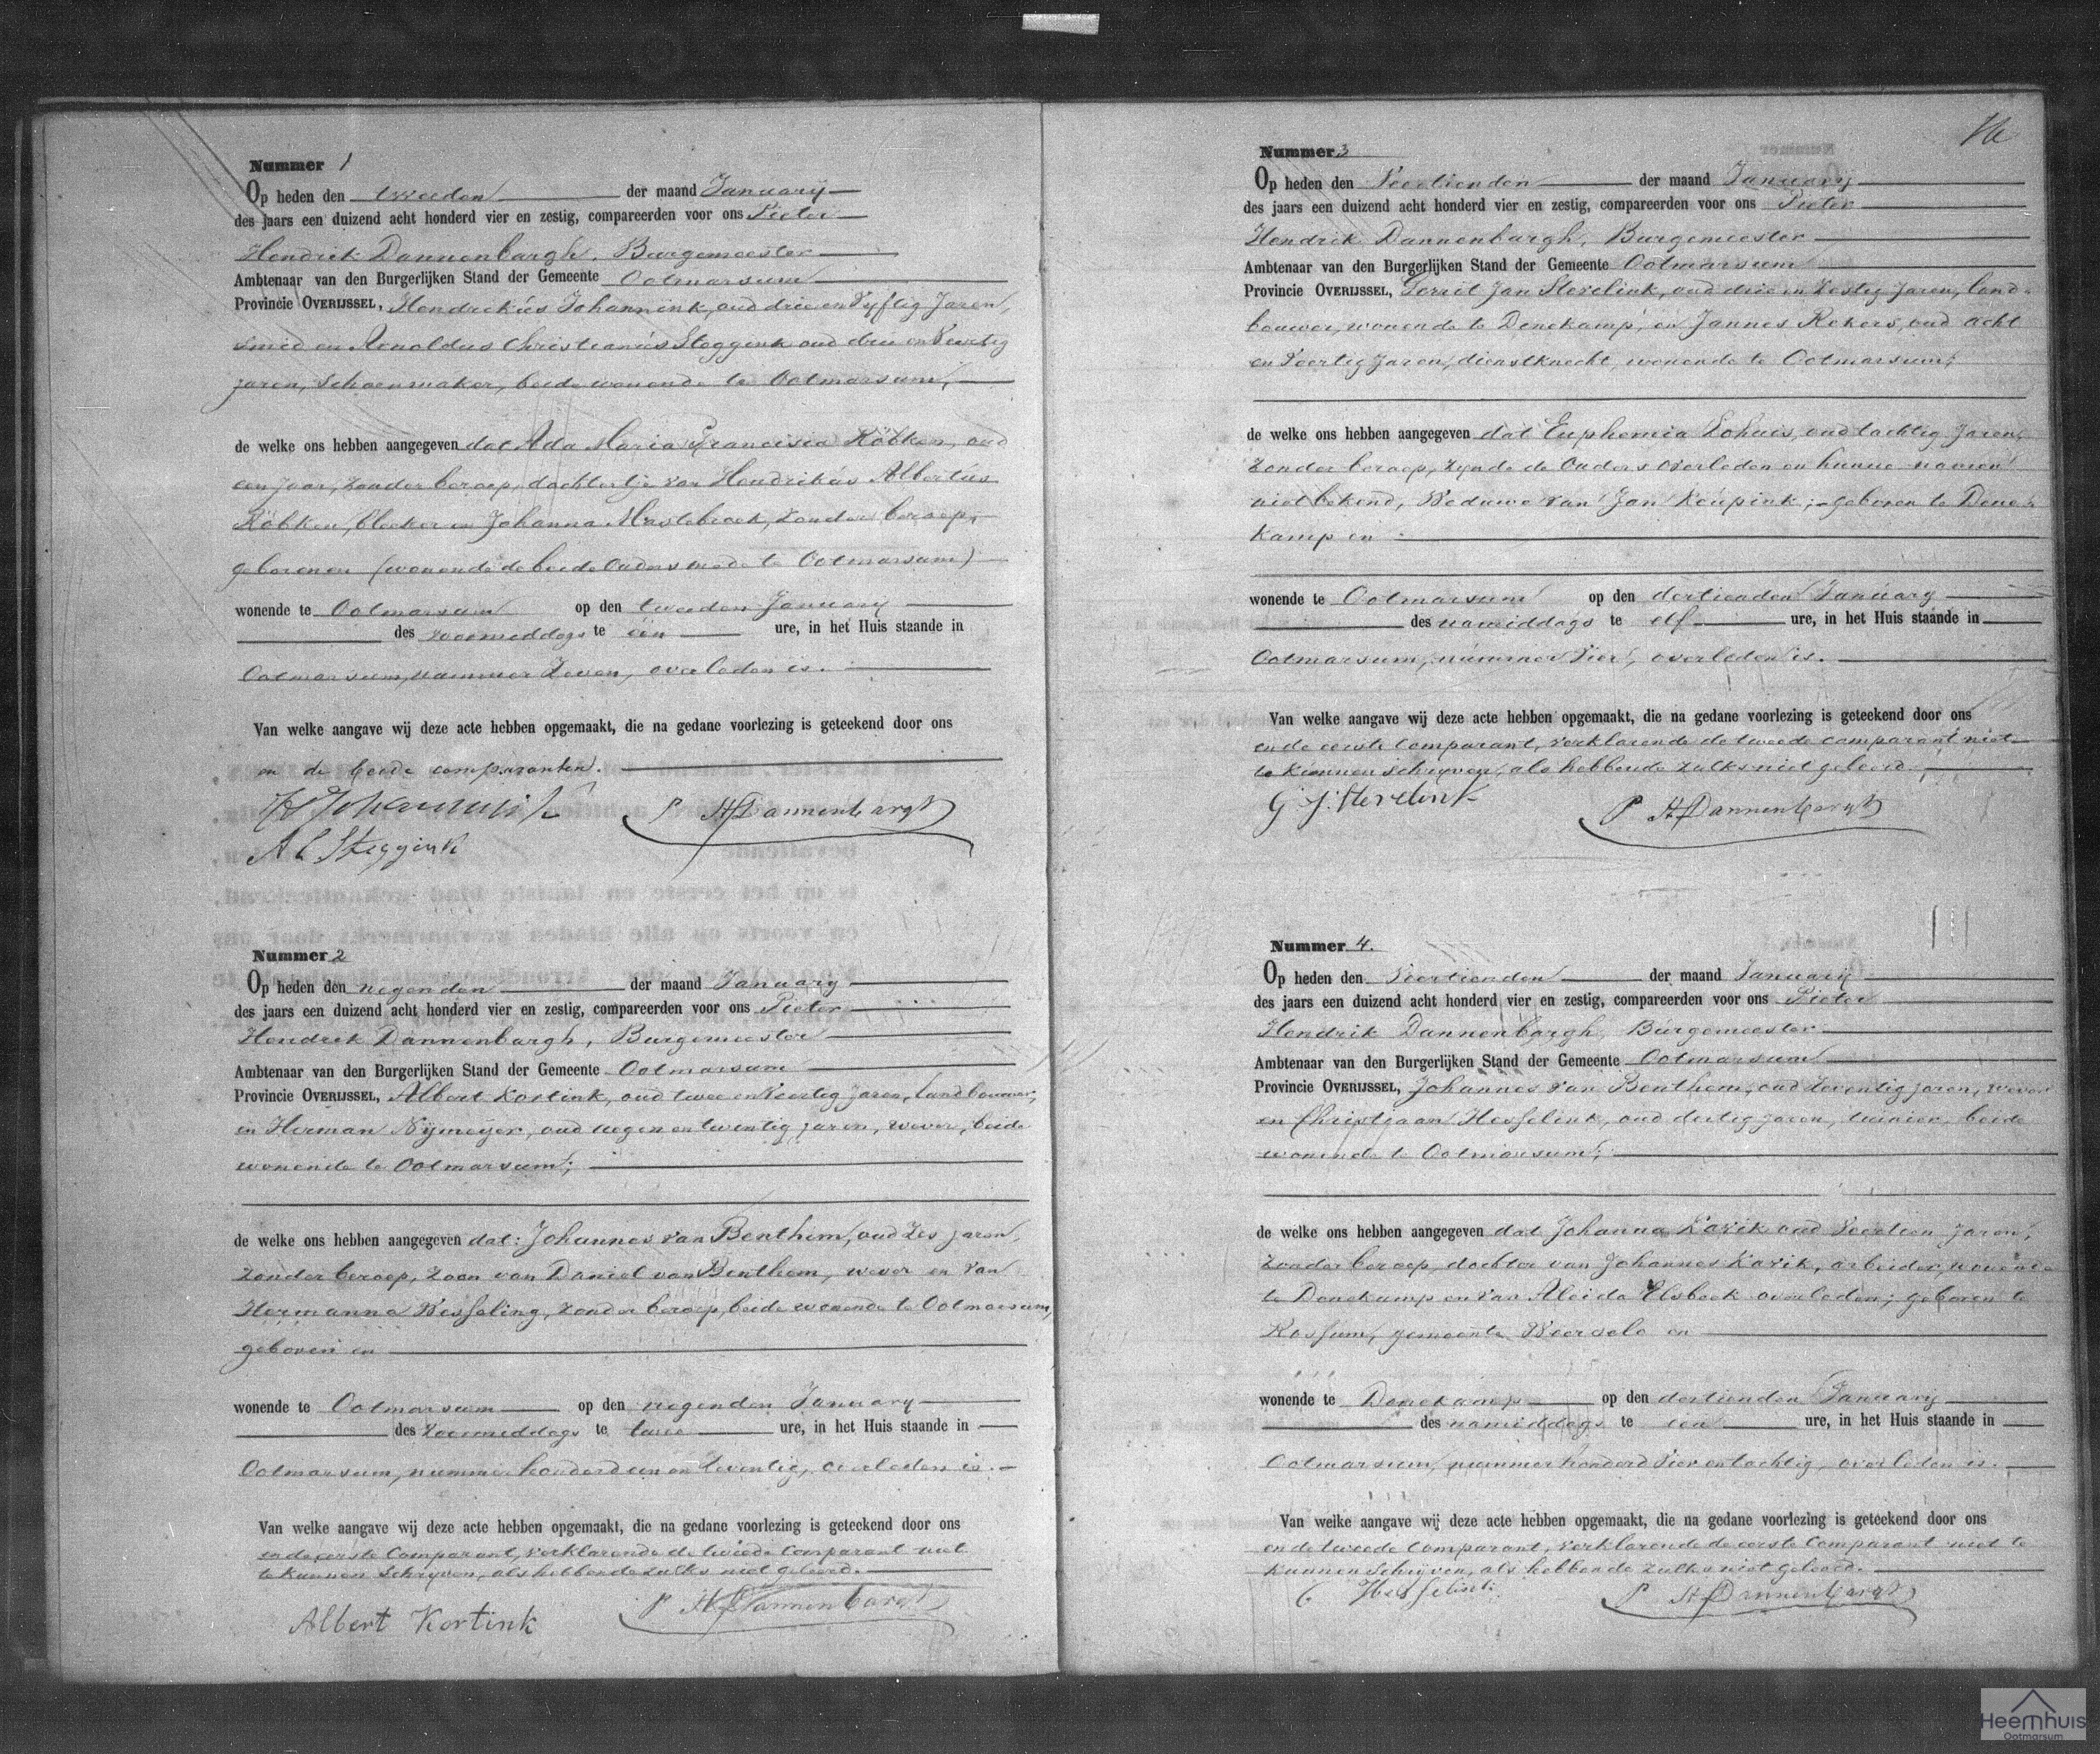 Nummer 1
Op heden den tweeden der maand Januarij
des jaars een duizend acht honderd vier en zestig, compareerden voor ons Pieter
Hendrik Dannenbargh, Burgemeester
Ambtenaar van den Burgerlijken Stand der Gemeente Ootmarsum
Provincie OVERIJSSEL, Hendrikus Johannink, oud drie en Vyftig Jaren,
smid en Arnoldus Christianus Steggink oud drie en Veertig
jaren, schoenmaker, beide wonende te Ootmarsum,
de welke ons hebben aangegeven dat Ada Maria Francisca Köbken, oud
een jaar, zonder beroep, dochtertje van Hendrikus Albertus
Köbken, bleeker en Johanna Mastebroek, zonder beroep,
geboren en (wonende de beide Ouders mede te Ootmarsum)
wonende te Ootmarsum op den tweeden January
des voormiddags te één ure, in het Huis staande in
Ootmarsum, nummer Zeven, overleden is.
Van welke aangave wij deze acte hebben opgemaakt, die na gedane voorlezing is geteekend door ons
en de beide comparanten.
H Johannink
P H Dannenbargh
A C Steggink
Nummer 2
Op heden den negenden der maand January
des jaars een duizend acht honderd vier en zestig, compareerden voor ons Pieter
Hendrik Dannenbargh, Burgemeester
Ambtenaar van den Burgerlijken Stand der Gemeente Ootmarsum
Provincie OVERIJSSEL, Albert Kortink, oud twee en Veertig Jaren, landbouwer,
en Herman Nijmeijer, oud negen en twintig jaren, wever, beide
wonende te Ootmarsum;
de welke ons hebben aangegeven dat: Johannes van Benthem, oud Zes jaren,
zonder beroep, zoon van Daniel van Benthem, wever en van
Hermanna Wesseling, zonder beroep, beide wonende te Ootmarsum,
geboren en
wonende te Ootmarsum op den negenden January
des voormiddags te twee ure, in het Huis staande in
Ootmarsum, nummer honderd een en Zeventig, overleden is.
Van welke aangave wij deze acte hebben opgemaakt, die na gedane voorlezing is geteekend door ons
en de eerste Comparant, verklarende de tweede Comparant niet
te kunnen Schryven, als hebbende zulks niet geleerd.
Albert Kortink
P H Dannenbargh
Nummer 3
Op heden den Veertienden der maand January
des jaars een duizend acht honderd vier en zestig, compareerden voor ons Pieter
Hendrik Dannenbargh, Burgemeester
Ambtenaar van den Burgerlijken Stand der Gemeente Ootmarsum
Provincie OVERIJSSEL, Gerrit Jan Stevelink, oud drie en Zestig Jaren, land-
bouwer, wonende te Denekamp, en Jannes Rekers, oud acht
en Veertig Jaren, dienstknecht, wonende te Ootmarsum;
de welke ons hebben aangegeven dat Euphemia Lohuis, oud tachtig Jaren,
zonder beroep, zynde de Ouders overleden en hunne namen
niet bekend, Weduwe van Jan Keupink; geboren te Dene-
kamp en
wonende te Ootmarsum op den dertienden January
des namiddags te elf ure, in het Huis staande in
Ootmarsum, nummer Vier, overleden is.
Van welke aangave wij deze acte hebben opgemaakt, die na gedane voorlezing is geteekend door ons
en de eerste Comparant, verklarende de tweede comparant niet
te kunnen schryven, als hebbende zulks niet geleerd.
G J Stevelink
P H Dannenbargh
Nummer 4.
Op heden den Veertienden der maand Januarij
des jaars een duizend acht honderd vier en zestig, compareerden voor ons Pieter
Hendrik Dannenbargh, Burgemeester
Ambtenaar van den Burgerlijken Stand der Gemeente Ootmarsum
Provincie OVERIJSSEL, Johannes van Benthem, oud Zeventig jaren, wever
en Christjaan Hesselink, oud dertig jaren, tuinier, beide
wonende te Ootmarsum;
de welke ons hebben aangegeven dat Johanna Kavik oud Veertien Jaren,
zonder beroep, dochter van Johannes Kavik, arbeider, wonende
te Denekamp en van Aleida Elsbeek overleden; geboren te
Rossum, gemeente Weerselo en
wonende te Denekamp op den dertienden January
des namiddags te een ure, in het Huis staande in
Ootmarsum, nummer honderd Vier en tachtig, overleden is.
Van welke aangave wij deze acte hebben opgemaakt, die na gedane voorlezing is geteekend door ons
en de tweede Comparant, verklarende de eerste Comparant niet te
kunnen Schryven, als hebbende zulks niet geleerd.
C Hesselink
P H Dannenbargh
Heemhuis
Ootmarsum